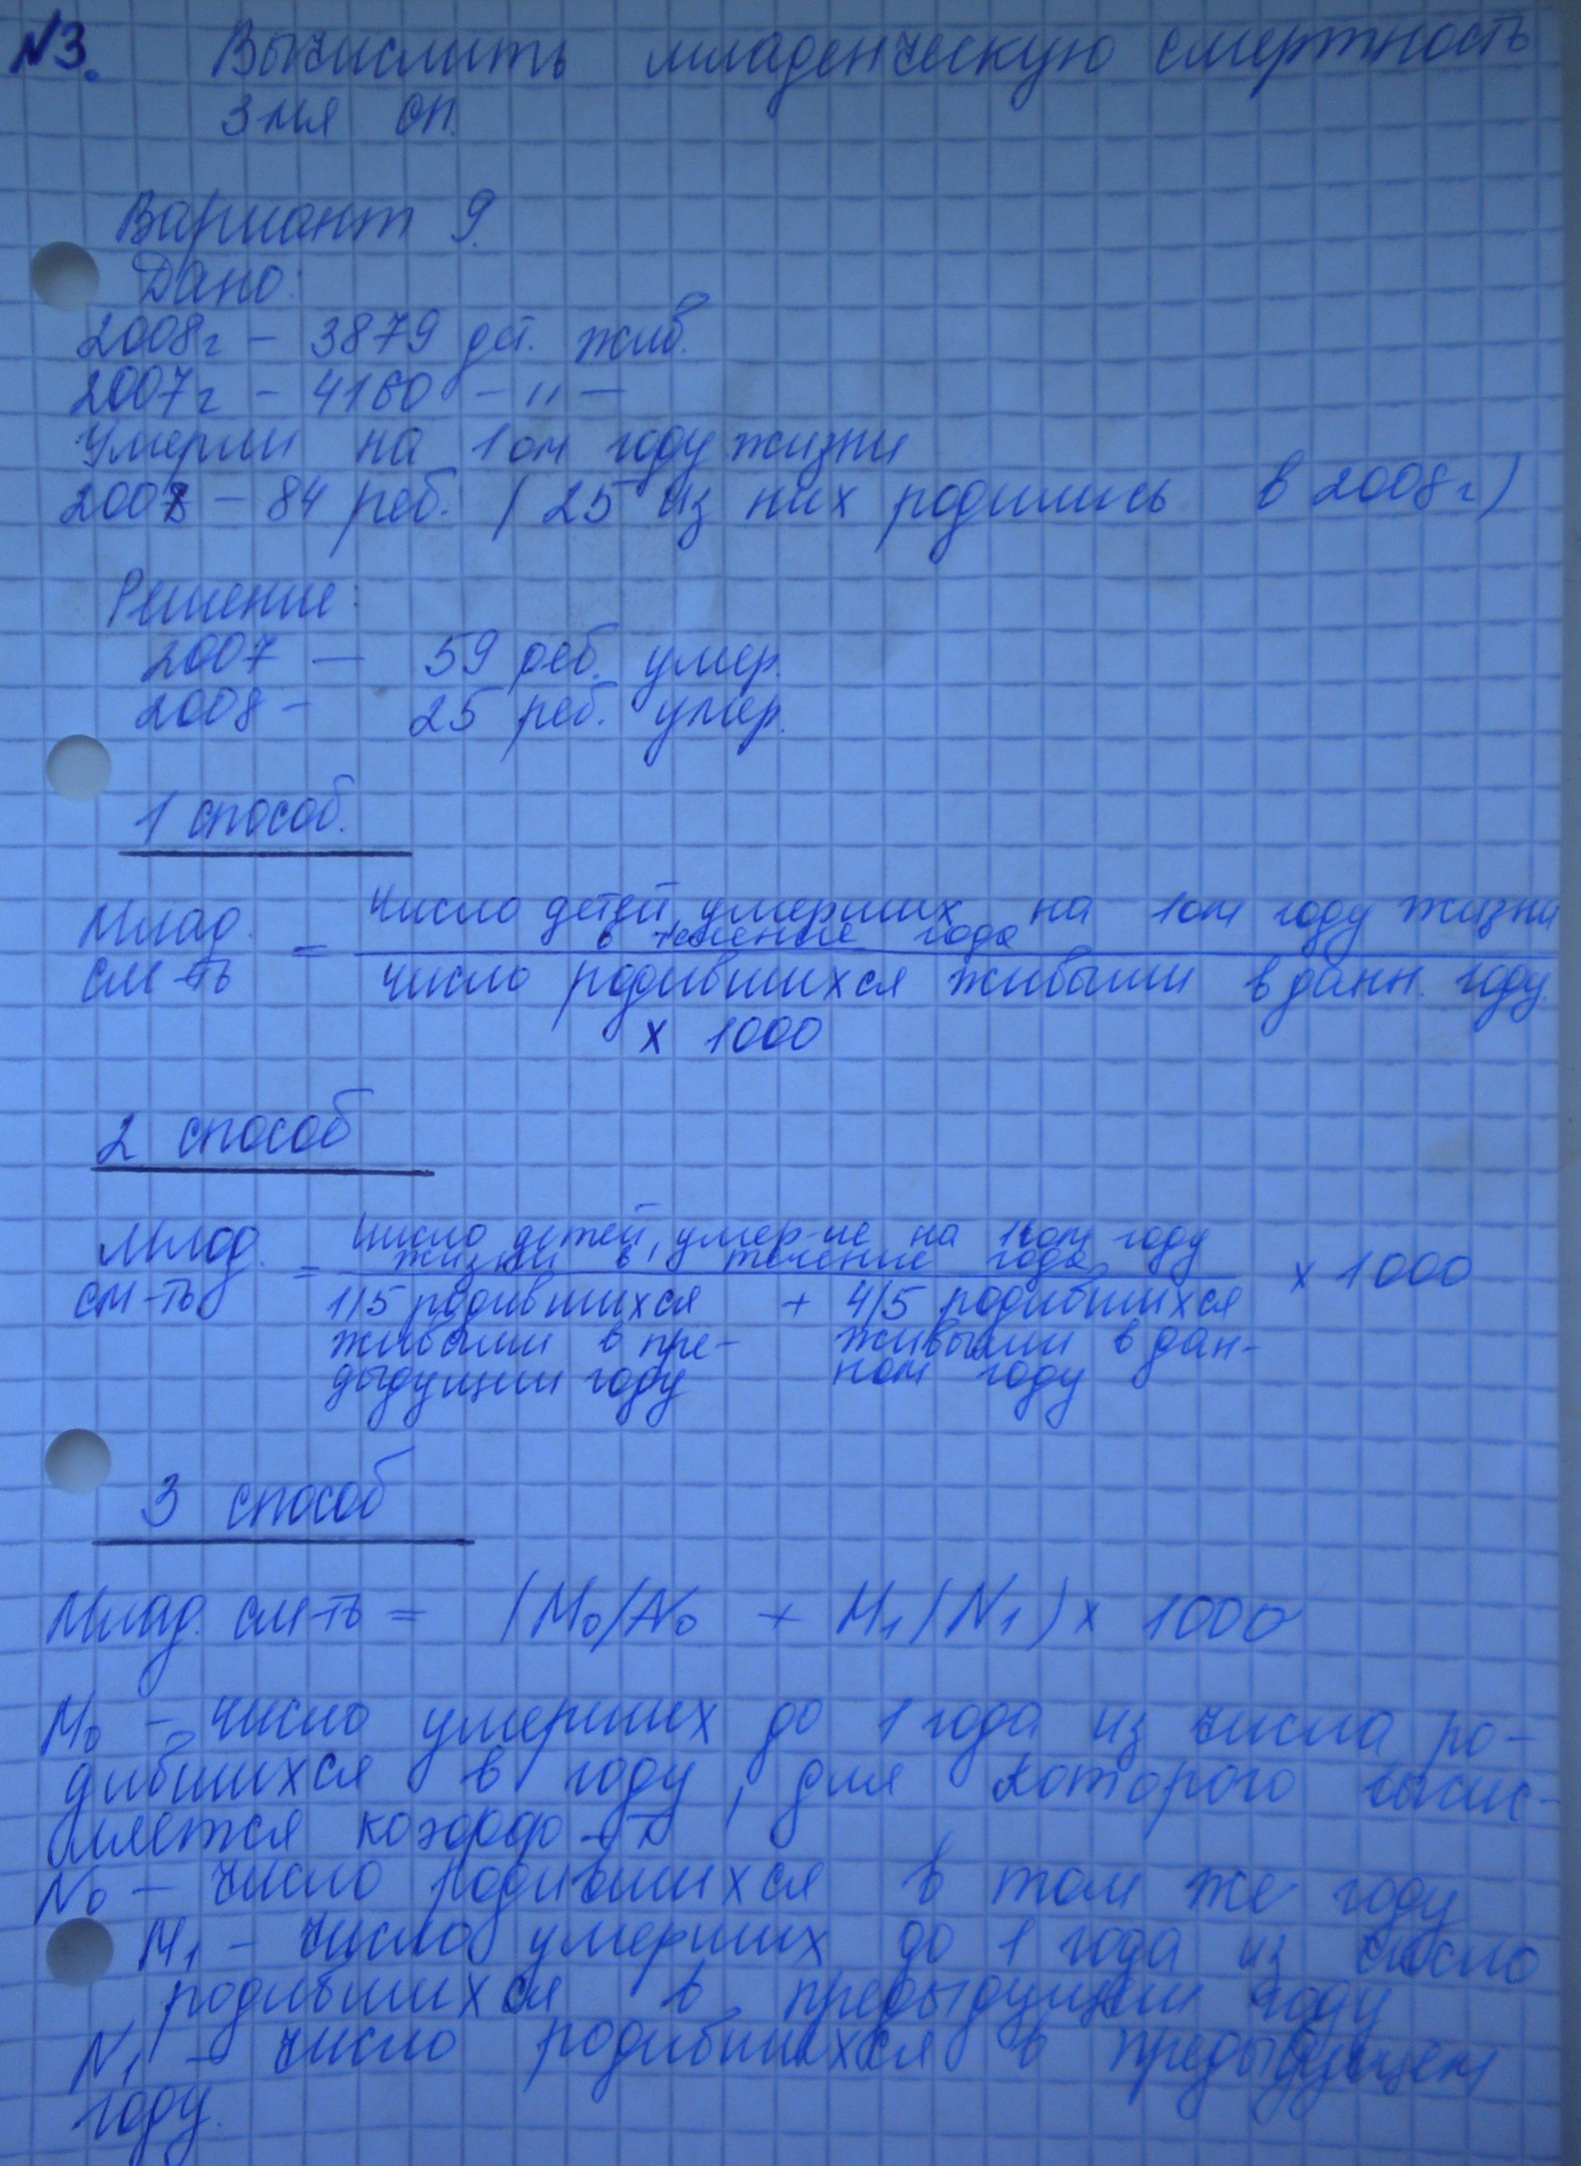 №3. Вычислить младенческую смертность
3мя сп.
Вариант 9.
Дано:
2008г – 3879 дет. жив.
2007г – 4160 – " –
Умерли на 1ом году жизни
2008 – 84 реб. (25 из них родились в 2008г)
Решение:
2007 – 59 реб. умер.
2008 – 25 реб. умер.
1 способ.
Млад. см-ть = Число детей, умерших на 1ом году жизни
в течение года
число родившихся живыми в данн. году.
х 1000
2 способ
Млад. см-ть = Число детей, умер-ие на 1ом году
жизни в, течение года х 1000
1/5 родившихся + 4/5 родившихся
живыми в пре- живыми в дан-
дыдущим году ном году
3 способ
Млад. см-ть = (M₀/N₀ + M₁/N₁) х 1000
M₀ – число умерших до 1 года из числа ро-
дившихся в году, для которого вычис-
ляется коэфф-т
N₀ – число родившихся в том же году
M₁ – число умерших до 1 года из число
родившихся в предыдущем году
N₁ – число родившихся в предыдущем
году.